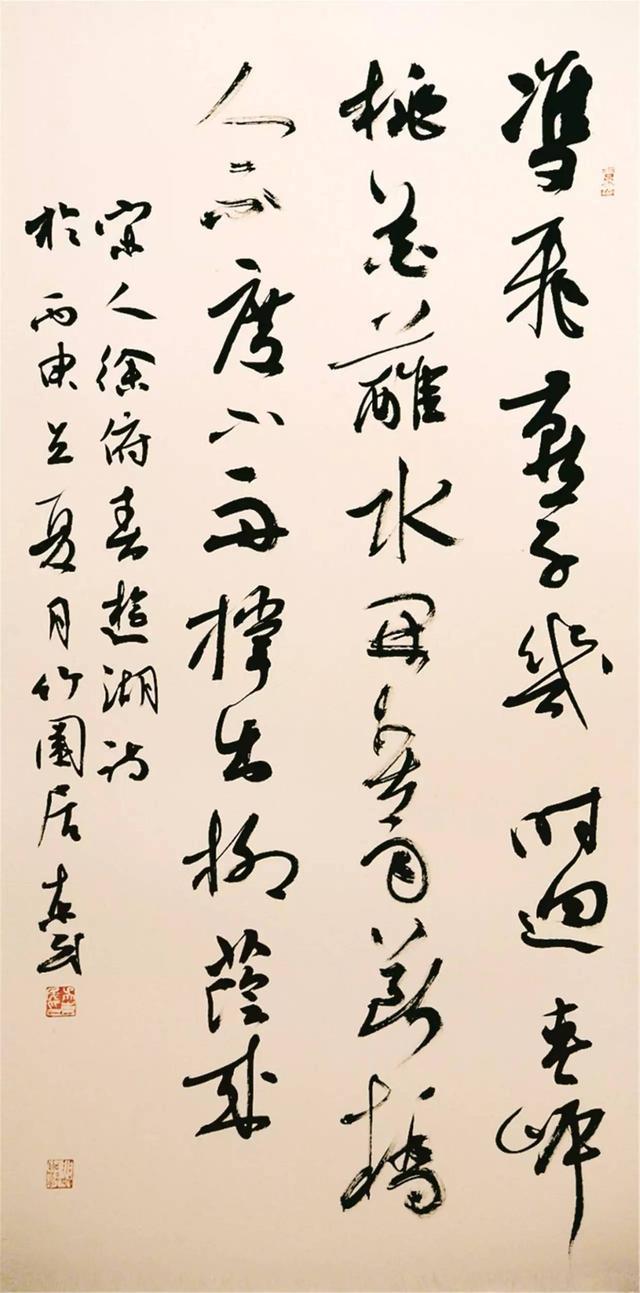 雙飛燕子幾時迴夾岸
桃花蘸水開春雨斷橋
人不度小舟撐出柳蔭來
宋人徐府春遊湖詩
於丙申之夏月竹園居